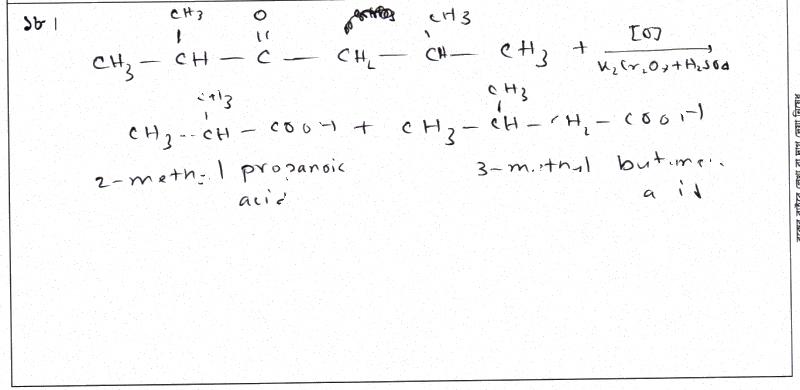 ১৮।
CH3 O CH3
CH3 — CH — C — CH2 — CH — CH3 + [O]
K2Cr2O7 + H2SO4
CH3 CH3
CH3 — CH — COOH + CH3 — CH — CH2 — COOH
2-methyl propanoic 3-methyl butanoic
acid acid